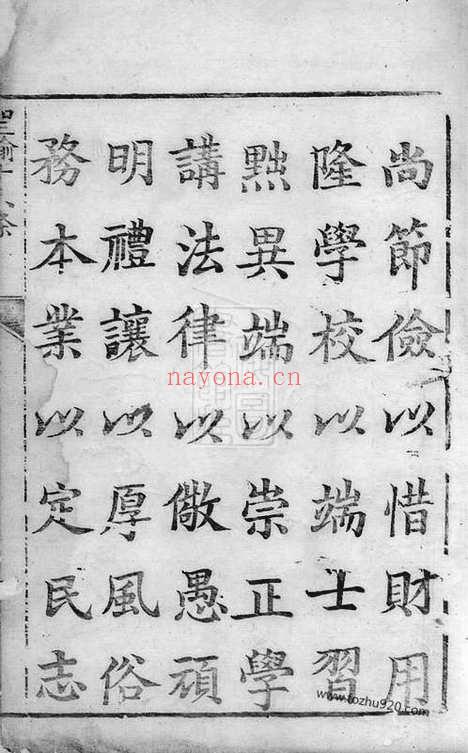 尚節儉以惜財用
隆學校以端士習
黜異端以崇正學
講法律以儆愚頑
明禮讓以厚風俗
務本業以定民志
nayona.cn
www.tozhu920.com